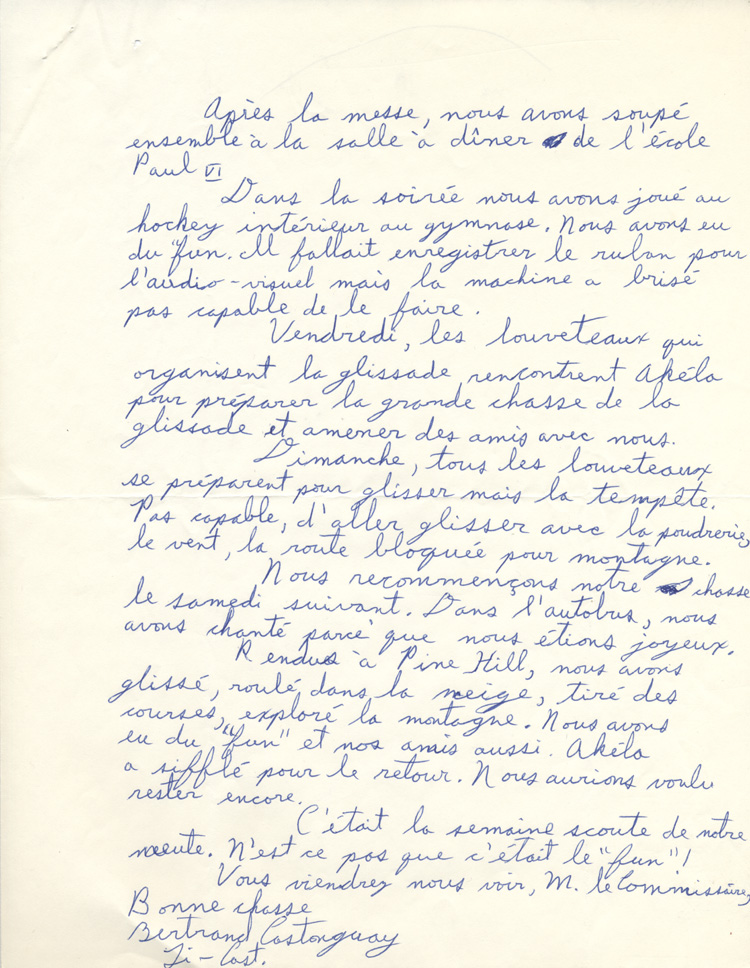 Après la messe, nous avons soupé
ensemble à la salle à dîner de l'école
Paul VI
Dans la soirée nous avons joué au
hockey intérieur au gymnase. Nous avons eu
du "fun. Il fallait enregistrer le ruban pour
l'audio-visuel mais la machine a brisé
pas capable de le faire.
Vendredi, les louveteaux qui
organisent la glissade rencontrent Akéla
pour préparer la grande chasse de la
glissade et amener des amis avec nous.
Dimanche, tous les louveteaux
se préparent pour glisser mais la tempête.
Pas capable, d'aller glisser avec la poudrerie,
le vent, la route bloquée pour montagne.
Nous recommençons notre chasse
le samedi suivant. Dans l'autobus, nous
avons chanté parce que nous étions joyeux.
Rendus à Pine Hill, nous avons
glissé, roulé dans la neige, tiré des
courses, exploré la montagne. Nous avons
eu du "fun" et nos amis aussi. Akéla
a sifflé pour le retour. Nous aurions voulu
rester encore.
C'était la semaine scoute de notre
meute. N'est ce pas que c'était le "fun"!
Vous viendrez nous voir, M. le Commissaire,
Bonne chasse
Bertrand Castonguay
Ti-Cast.